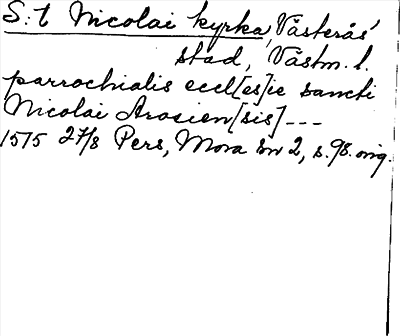 S:t Nicolai kyrka, Västerås'
stad, Västm. l.
parrochialis eccl[es]ie sancti
Nicolai Arosien[sis] ---
1515 27/8 Pers, Mora sn 2, s. 98. orig.